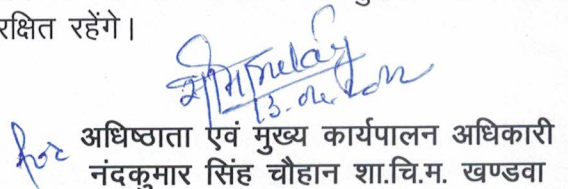 रक्षित रहेंगे।
for अधिष्ठाता एवं मुख्य कार्यपालन अधिकारी
नंदकुमार सिंह चौहान शा.चि.म. खण्डवा